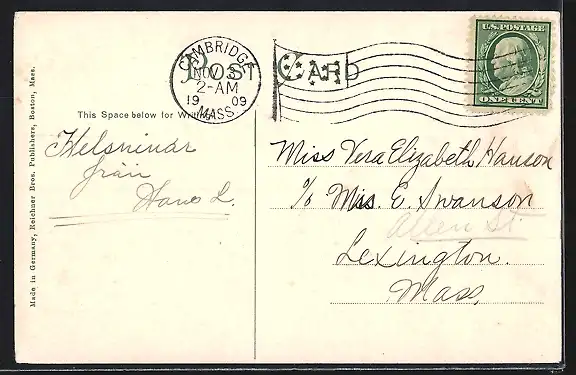 POST CARD
CAMBRIDGE
NOV 3
2-AM
1909
MASS.
U.S. POSTAGE
ONE CENT
This Space below for Writing
Helsningar
från
Miss Vera Elizabeth Hanson
c/o Mrs. E. Swanson
Allen St.
Lexington.
Mass.
Made in Germany, Reichner Bros. Publishers, Boston, Mass.